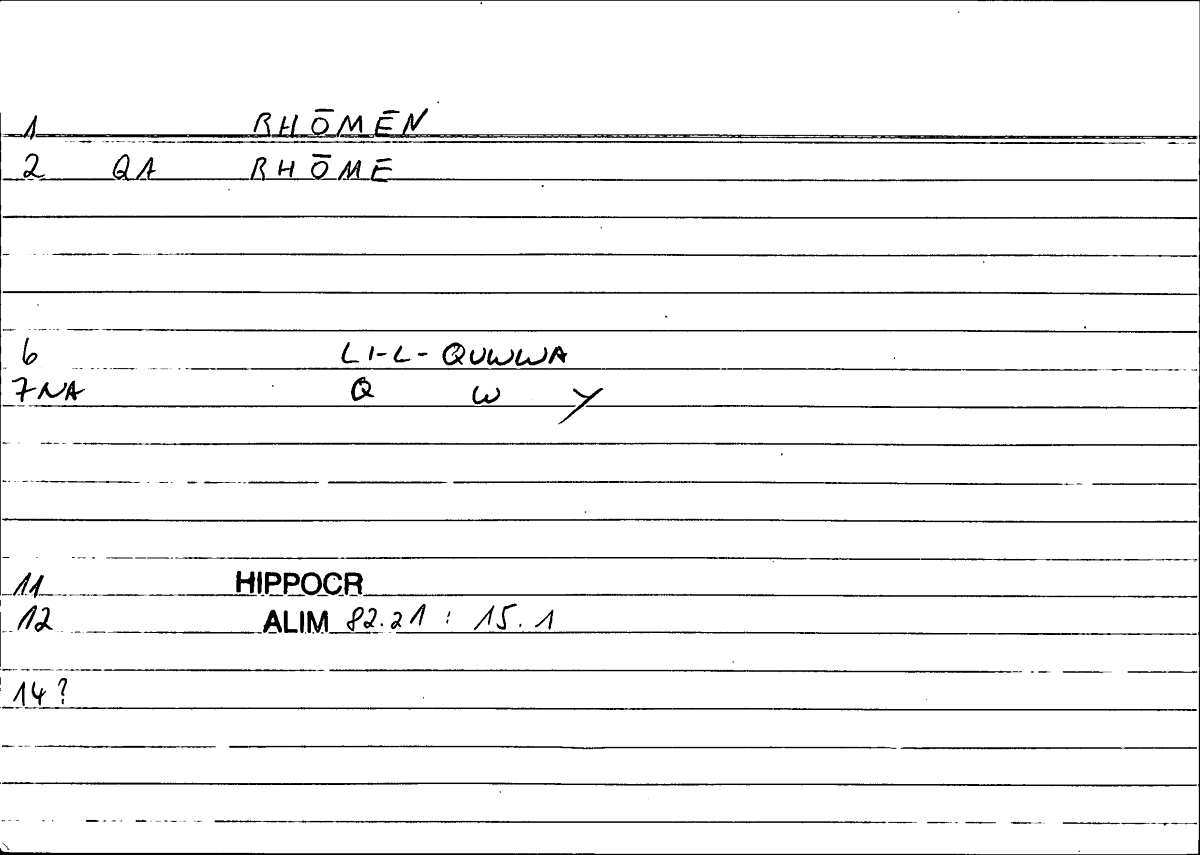 1 RHŌMĒN
2 QA RHŌMĒ
6 LI-L-QUWWA
7NA Q W Y
11 HIPPOCR
12 ALIM 82.21 : 15.1
14?